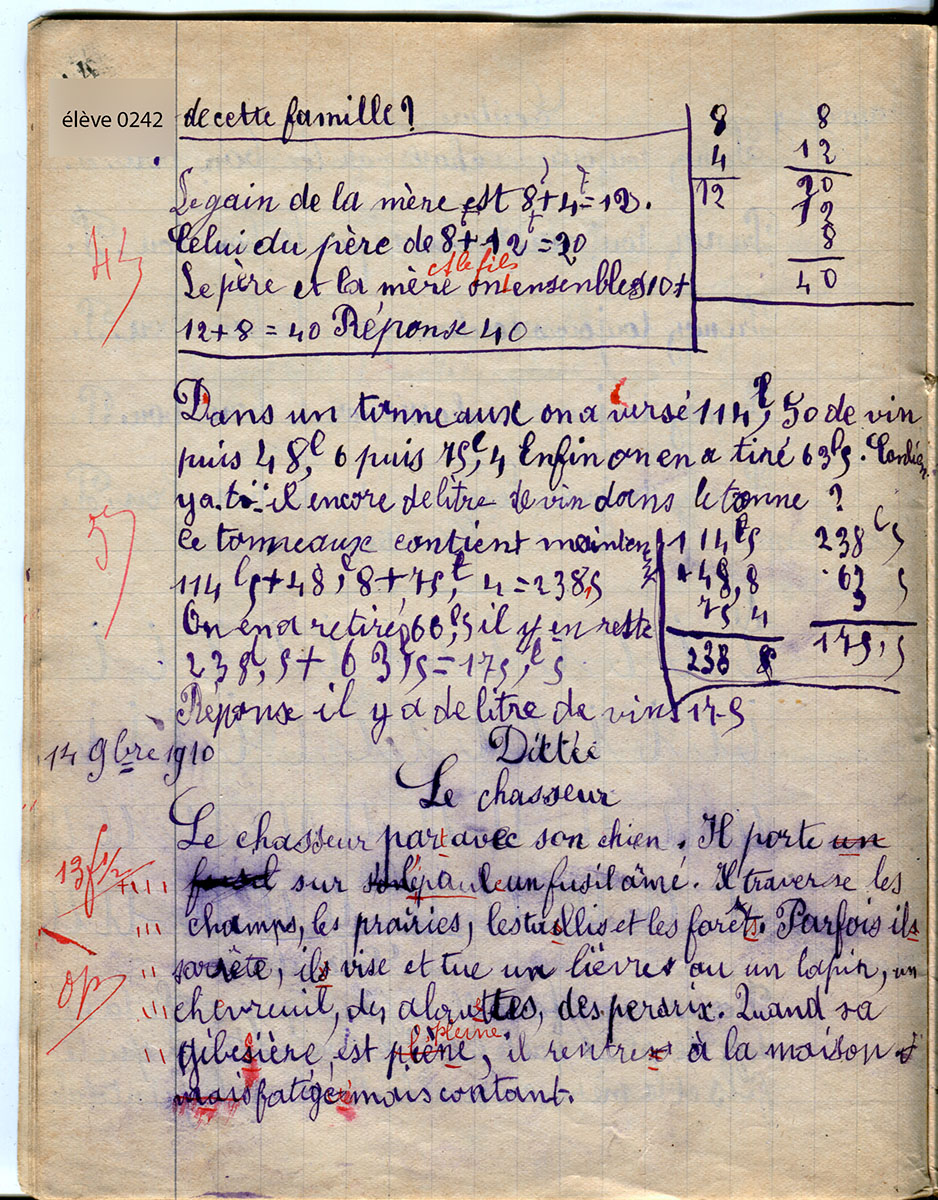 élève 0242
de cette famille?
8 8
4 12
12 20
12
8
40
Le gain de la mère est 8+4=12.
Celui du père de 8+12=20
et le fils
Le père et la mère ont ensembles
12+8=40 Réponse 40
Dans un tonneaux on a versé 114l,50 de vin
puis 48l,6 puis 75l,4 Enfin on en a tiré 63l5.
y a-t-il encore de litre de vin dans le tonne ?
Ce tonneaux contient
114l5+48l8+75l,4=238,5
On en a retiré il y en reste
238l,5+63l,5=175,l5
Réponse il y a de litre de vin
114l5 238l5
+48,8 63 5
75 4
238 175,5
14 9bre 1910
Dictée
Le chasseur
Le chasseur part avec son chien. Il porte un
fusil sur son épaule un fusil âmé. Il traverse les
champs, les prairies, les taillis et les forêts. Parfois ils
sarrête, ils vise et tue un lièvre ou un lapin, un
chevreuil, des alouettes, des perdrix. Quand sa
pleine
gibesière, est plène, il rentre à la maison
mais fatigé mais contant.
13f1/2
op